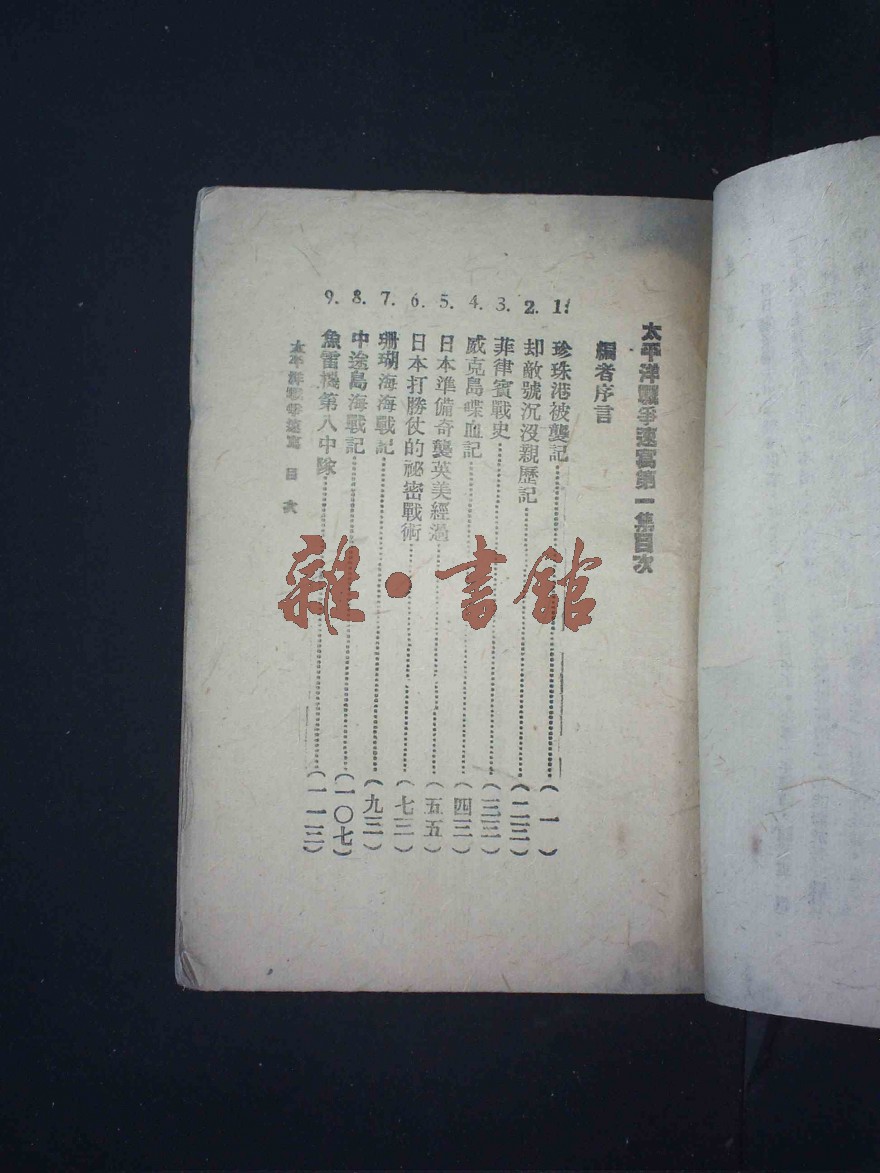 太平洋戰爭速寫第一集目次
編者序言
1. 珍珠港被襲記……(一)
2. 却敵號沉沒親歷記……(二三)
3. 菲律賓戰史……(三三)
4. 威克島喋血記……(四三)
5. 日本準備奇襲英美經過……(五五)
6. 日本打勝仗的祕密戰術……(七三)
7. 珊瑚海海戰記……(九三)
8. 中途島海戰記……(一〇七)
9. 魚雷機第八中隊……(一一三)
太平洋戰爭速寫 目次
雜·書館